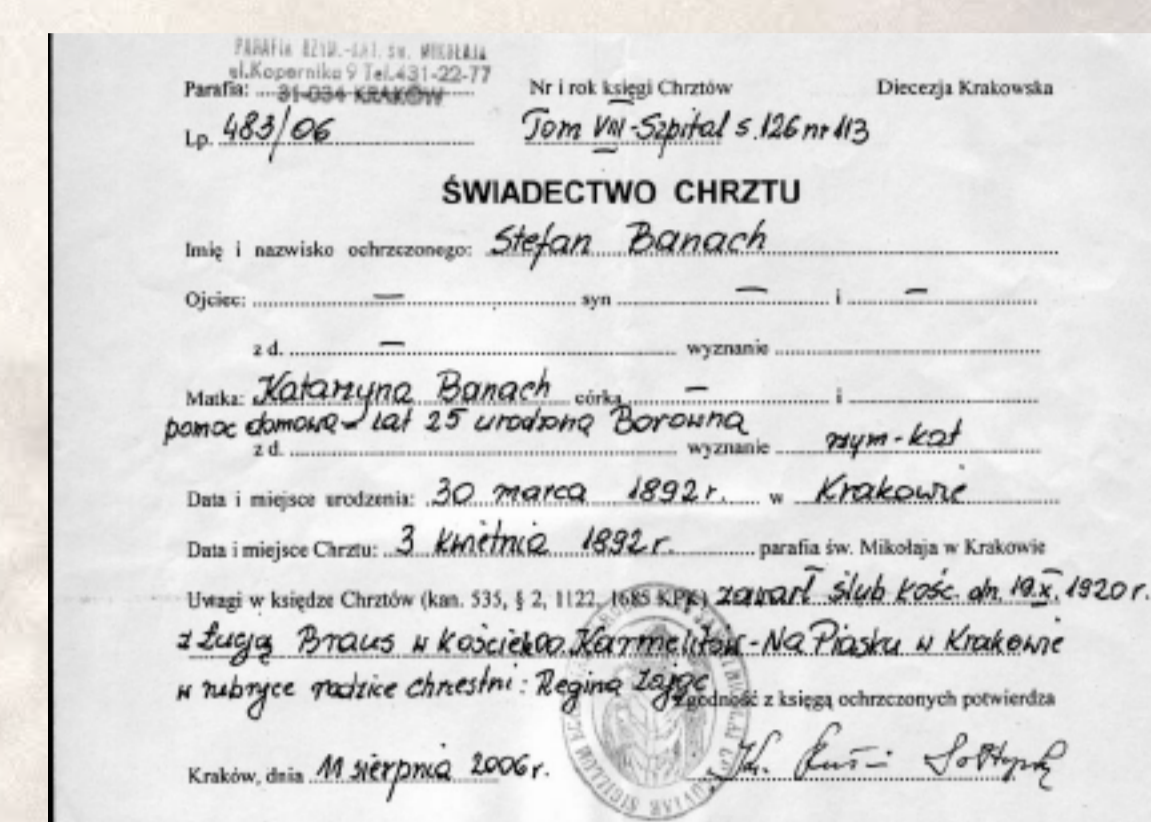 PARAFIA RZYM.-KAT. św. MIKOŁAJA
ul.Kopernika 9 Tel.431-22-77
31-034 KRAKÓW
Parafia: Nr i rok księgi Chrztów Diecezja Krakowska
Lp. 483/06 Tom VIII-Szpital s.126 nr 113
ŚWIADECTWO CHRZTU
Imię i nazwisko ochrzczonego: Stefan Banach
Ojciec: — syn — i —
z d. — wyznanie
Matka: Katarzyna Banach córka — i
pomoc domowa - lat 25 urodzona Borowna
z d. wyznanie rzym-kat
Data i miejsce urodzenia: 30 marca 1892 r. w Krakowie
Data i miejsce Chrztu: 3 kwietnia 1892 r. parafia św. Mikołaja w Krakowie
Uwagi w księdze Chrztów (kan. 535, § 2, 1122, 1685 KPK) zawarł ślub kośc. dn. 19.X.1920 r.
z Łucją Braus w kościele OO. Karmelitów - Na Piasku w Krakowie
w rubryce rodzice chrzestni: Regina Zając
Zgodność z księgą ochrzczonych potwierdza
Kraków, dnia 11 sierpnia 2006 r.